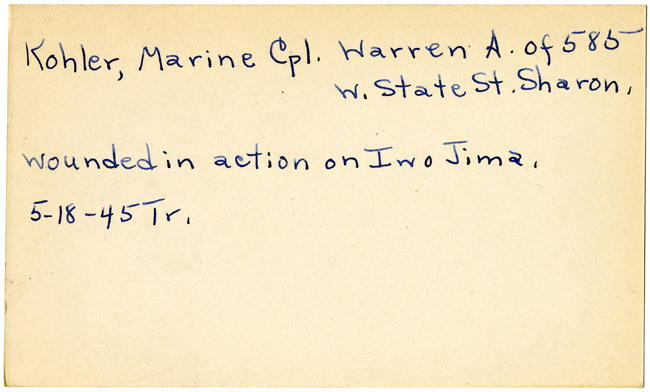 Kohler, Marine Cpl. Warren A. of 585
W. State St. Sharon,
wounded in action on Iwo Jima.
5-18-45 Tr.